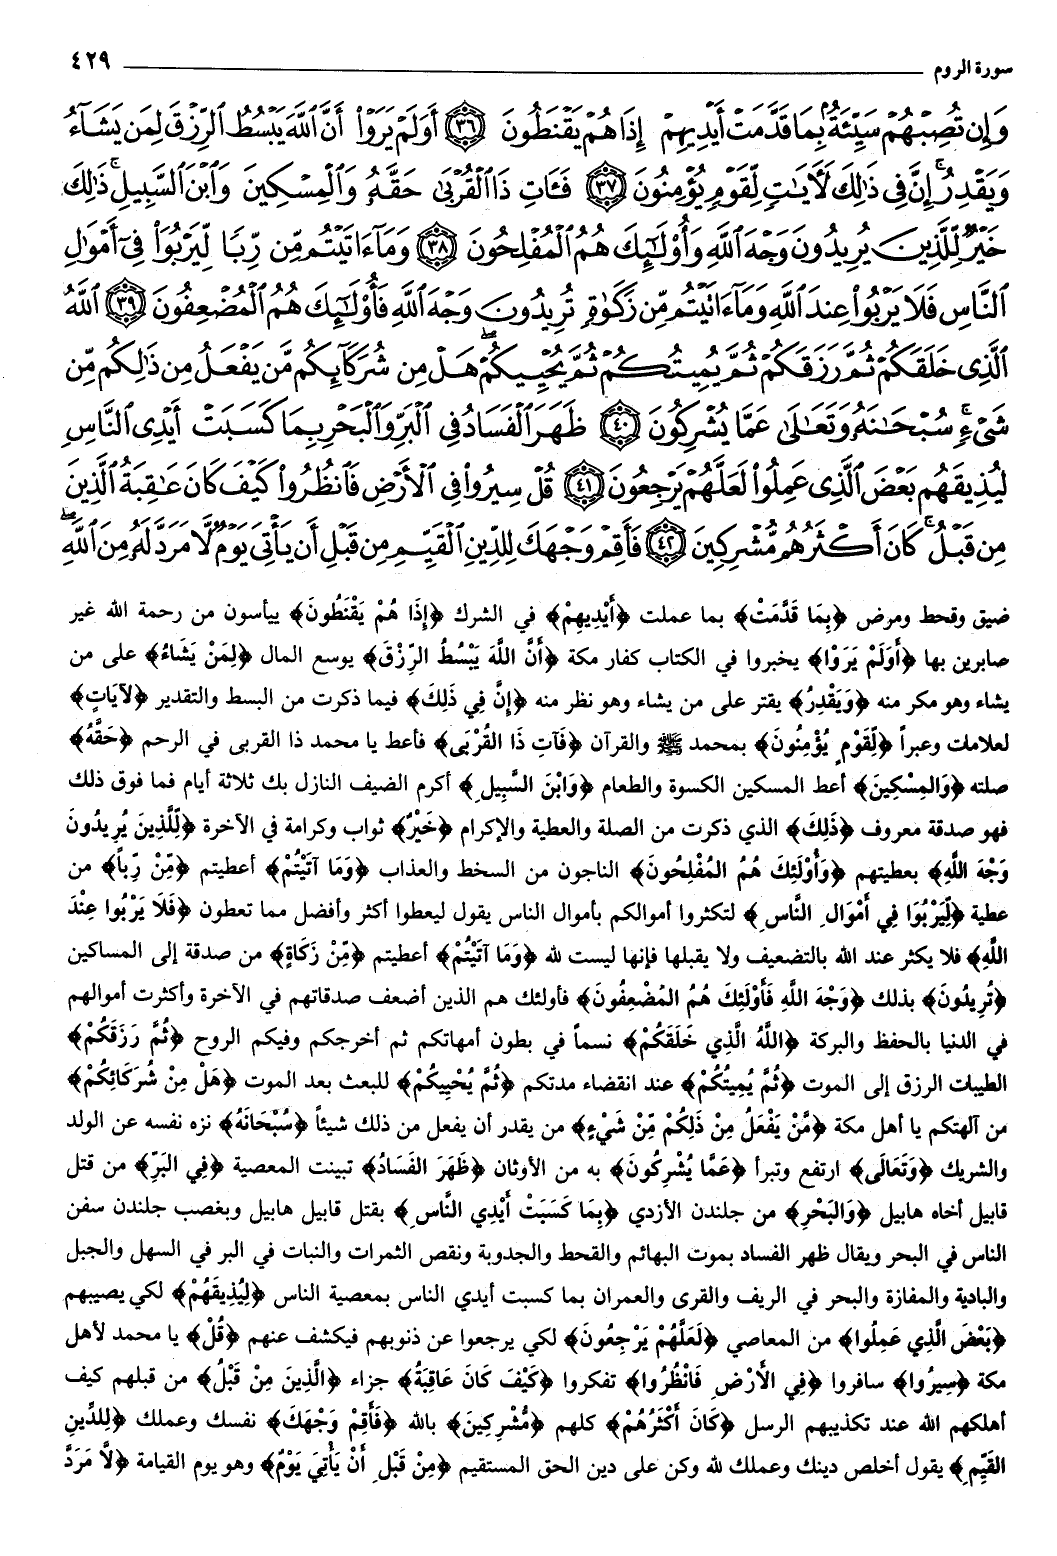 سورة الروم ٤٢٩
وَإِن تُصِبْهُمْ سَيِّئَةٌۢ بِمَا قَدَّمَتْ أَيْدِيهِمْ إِذَا هُمْ يَقْنَطُونَ ٣٦ أَوَلَمْ يَرَوْا۟ أَنَّ ٱللَّهَ يَبْسُطُ ٱلرِّزْقَ لِمَن يَشَآءُ
وَيَقْدِرُ ۚ إِنَّ فِى ذَٰلِكَ لَءَايَٰتٍ لِّقَوْمٍ يُؤْمِنُونَ ٣٧ فَـَٔاتِ ذَا ٱلْقُرْبَىٰ حَقَّهُۥ وَٱلْمِسْكِينَ وَٱبْنَ ٱلسَّبِيلِ ۚ ذَٰلِكَ
خَيْرٌ لِّلَّذِينَ يُرِيدُونَ وَجْهَ ٱللَّهِ وَأُو۟لَٰٓئِكَ هُمُ ٱلْمُفْلِحُونَ ٣٨ وَمَآ ءَاتَيْتُم مِّن رِّبًا لِّيَرْبُوَا۟ فِىٓ أَمْوَٰلِ
ٱلنَّاسِ فَلَا يَرْبُوا۟ عِندَ ٱللَّهِ وَمَآ ءَاتَيْتُم مِّن زَكَوٰةٍ تُرِيدُونَ وَجْهَ ٱللَّهِ فَأُو۟لَٰٓئِكَ هُمُ ٱلْمُضْعِفُونَ ٣٩ ٱللَّهُ
ٱلَّذِى خَلَقَكُمْ ثُمَّ رَزَقَكُمْ ثُمَّ يُمِيتُكُمْ ثُمَّ يُحْيِيكُمْ ۖ هَلْ مِن شُرَكَآئِكُم مَّن يَفْعَلُ مِن ذَٰلِكُم مِّن
شَىْءٍ ۚ سُبْحَٰنَهُۥ وَتَعَٰلَىٰ عَمَّا يُشْرِكُونَ ٤٠ ظَهَرَ ٱلْفَسَادُ فِى ٱلْبَرِّ وَٱلْبَحْرِ بِمَا كَسَبَتْ أَيْدِى ٱلنَّاسِ
لِيُذِيقَهُم بَعْضَ ٱلَّذِى عَمِلُوا۟ لَعَلَّهُمْ يَرْجِعُونَ ٤١ قُلْ سِيرُوا۟ فِى ٱلْأَرْضِ فَٱنظُرُوا۟ كَيْفَ كَانَ عَٰقِبَةُ ٱلَّذِينَ
مِن قَبْلُ ۚ كَانَ أَكْثَرُهُم مُّشْرِكِينَ ٤٢ فَأَقِمْ وَجْهَكَ لِلدِّينِ ٱلْقَيِّمِ مِن قَبْلِ أَن يَأْتِىَ يَوْمٌ لَّا مَرَدَّ لَهُۥ مِنَ ٱللَّهِ ۖ
ضيق وقحط ومرض ﴿بِمَا قَدَّمَتْ﴾ بما عملت ﴿أَيْدِيهِمْ﴾ في الشرك ﴿إِذَا هُمْ يَقْنَطُونَ﴾ ييأسون من رحمة الله غير
صابرين بها ﴿أَوَلَمْ يَرَوْا﴾ يخبروا في الكتاب كفار مكة ﴿أَنَّ اللَّهَ يَبْسُطُ الرِّزْقَ﴾ يوسع المال ﴿لِمَنْ يَشَاءُ﴾ على من
يشاء وهو مكر منه ﴿وَيَقْدِرُ﴾ يقتر على من يشاء وهو نظر منه ﴿إِنَّ فِي ذَلِكَ﴾ فيما ذكرت من البسط والتقدير ﴿لآيَاتٍ﴾
لعلامات وعبراً ﴿لِّقَوْمٍ يُؤْمِنُونَ﴾ بمحمد ﷺ والقرآن ﴿فَآتِ ذَا القُرْبَى﴾ فأعط يا محمد ذا القربى في الرحم ﴿حَقَّهُ﴾
صلته ﴿وَالمِسْكِينَ﴾ أعط المسكين الكسوة والطعام ﴿وَابْنَ السَّبِيلِ﴾ أكرم الضيف النازل بك ثلاثة أيام فما فوق ذلك
فهو صدقة معروف ﴿ذَلِكَ﴾ الذي ذكرت من الصلة والعطية والإكرام ﴿خَيْرٌ﴾ ثواب وكرامة في الآخرة ﴿لِّلَّذِينَ يُرِيدُونَ
وَجْهَ اللَّهِ﴾ بعطيتهم ﴿وَأُوْلَئِكَ هُمُ المُفْلِحُونَ﴾ الناجون من السخط والعذاب ﴿وَمَا آتَيْتُمْ﴾ أعطيتم ﴿مِّنْ رِّباً﴾ من
عطية ﴿لِّيَرْبُوَا فِي أَمْوَالِ النَّاسِ﴾ لتكثروا أموالكم بأموال الناس يقول ليعطوا أكثر وأفضل مما تعطون ﴿فَلَا يَرْبُوا عِنْدَ
اللَّهِ﴾ فلا يكثر عند الله بالتضعيف ولا يقبلها فإنها ليست لله ﴿وَمَا آتَيْتُمْ﴾ أعطيتم ﴿مِّنْ زَكَاةٍ﴾ من صدقة إلى المساكين
﴿تُرِيدُونَ﴾ بذلك ﴿وَجْهَ اللَّهِ فَأُوْلَئِكَ هُمُ المُضْعِفُونَ﴾ فأولئك هم الذين أضعف صدقاتهم في الآخرة وأكثرت أموالهم
في الدنيا بالحفظ والبركة ﴿اللَّهُ الَّذِي خَلَقَكُمْ﴾ نسماً في بطون أمهاتكم ثم أخرجكم وفيكم الروح ﴿ثُمَّ رَزَقَكُمْ﴾
الطيبات الرزق إلى الموت ﴿ثُمَّ يُمِيتُكُمْ﴾ عند انقضاء مدتكم ﴿ثُمَّ يُحْيِيكُمْ﴾ للبعث بعد الموت ﴿هَلْ مِنْ شُرَكَائِكُمْ﴾
من آلهتكم يا أهل مكة ﴿مَّنْ يَفْعَلُ مِنْ ذَلِكُمْ مِّنْ شَيْءٍ﴾ من يقدر أن يفعل من ذلك شيئاً ﴿سُبْحَانَهُ﴾ نزه نفسه عن الولد
والشريك ﴿وَتَعَالَى﴾ ارتفع وتبرأ ﴿عَمَّا يُشْرِكُونَ﴾ به من الأوثان ﴿ظَهَرَ الفَسَادُ﴾ تبينت المعصية ﴿فِي البَرِّ﴾ من قتل
قابيل أخاه هابيل ﴿وَالبَحْرِ﴾ من جلندن الأزدي ﴿بِمَا كَسَبَتْ أَيْدِي النَّاسِ﴾ بقتل قابيل هابيل وبغصب جلندن سفن
الناس في البحر ويقال ظهر الفساد بموت البهائم والقحط والجدوبة ونقص الثمرات والنبات في البر في السهل والجبل
والبادية والمفازة والبحر في الريف والقرى والعمران بما كسبت أيدي الناس بمعصية الناس ﴿لِيُذِيقَهُمْ﴾ لكي يصيبهم
﴿بَعْضَ الَّذِي عَمِلُوا﴾ من المعاصي ﴿لَعَلَّهُمْ يَرْجِعُونَ﴾ لكي يرجعوا عن ذنوبهم فيكشف عنهم ﴿قُلْ﴾ يا محمد لأهل
مكة ﴿سِيرُوا﴾ سافروا ﴿فِي الأَرْضِ فَانْظُرُوا﴾ تفكروا ﴿كَيْفَ كَانَ عَاقِبَةُ﴾ جزاء ﴿الَّذِينَ مِنْ قَبْلُ﴾ من قبلهم كيف
أهلكهم الله عند تكذيبهم الرسل ﴿كَانَ أَكْثَرُهُمْ﴾ كلهم ﴿مُّشْرِكِينَ﴾ بالله ﴿فَأَقِمْ وَجْهَكَ﴾ نفسك وعملك ﴿لِلدِّينِ
القَيِّمِ﴾ يقول أخلص دينك وعملك لله وكن على دين الحق المستقيم ﴿مِنْ قَبْلِ أَنْ يَأْتِيَ يَوْمٌ﴾ وهو يوم القيامة ﴿لَّا مَرَدَّ